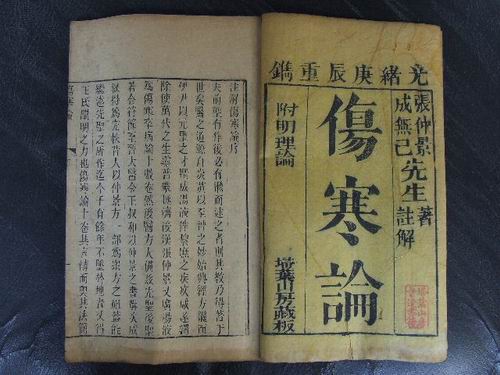 光緒庚辰重鐫
張仲景
成無己
先生
著
註解
傷寒論
附明理論
掃葉山房藏板
註解傷寒論序
夫前聖有作後必有繼而述之者則其教乃得著于
世矣醫之道源自炎黃以至神之妙始興經方繼而
伊尹以元聖之才撰成湯液俾黎庶之疾疢咸遂蠲
除使萬代之生靈普蒙拯濟後漢張仲景又廣湯液
為傷寒卒病論十數卷然後醫方大備茲先聖後聖
若合符節至晉太醫令王叔和以仲景之書撰次成
敘得為完秩昔人以仲景方一部為眾方之祖蓋能
繼述先聖之所作迄今千有餘年不墜於地者又得
王氏闡明之力也傷寒論十卷其言精而奧其法簡